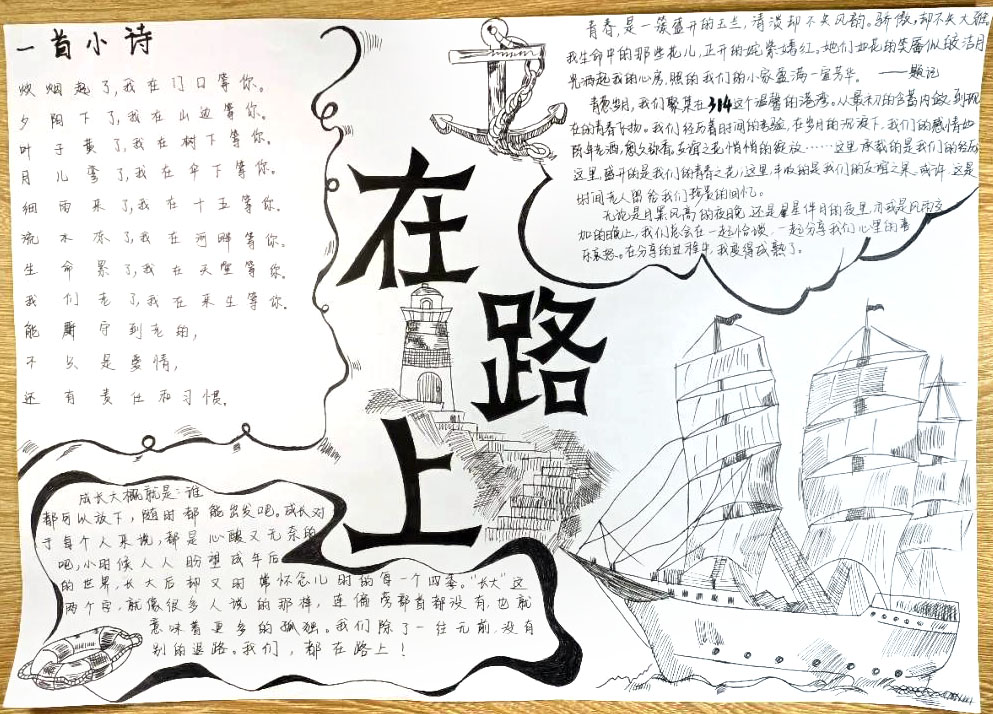 一首小诗
炊烟起了,我在门口等你。
夕阳下了,我在山边等你。
叶子黄了,我在树下等你。
月儿弯了,我在伞下等你。
细雨来了,我在十五等你。
流水冻了,我在河畔等你。
生命累了,我在天堂等你。
我们老了,我在来生等你。
能厮守到老的,
不只是爱情,
还有责任和习惯。
在
路
上
青春,是一簇盛开的玉兰,清淡却不失风韵。骄傲,却不失大雅。
我生命中的那些花儿,正开的姹紫嫣红。她们如花的笑靥似皎洁月
光洒起我的心房,照的我们的小家盈满一室芳华。——题记
青春岁月,我们聚集在314这个温馨的港湾。从最初的含蓄内敛,到现
在的青春飞扬。我们经历着时间的考验,在岁月的沉淀下,我们的感情如
陈年老酒,愈久弥香,友谊之花悄悄的绽放……这里承载的是我们的经历
这里,盛开的是我们的青春之花,这里,丰收的是我们的友谊之果。或许,这是
时间老人留给我们珍贵的回忆。
无论是月黑风高的夜晚,还是星星伴月的夜里,亦或是风雨交
加的晚上,我们总会在一起恰谈,一起分享我们心里的喜
乐哀怒。在分享的过程中,我变得成熟了。
成长大概就是:谁
都可以放下,随时都能出发吧。成长对
于每个人来说,都是心酸又无奈的
吧,小时候人人盼望成年后
的世界,长大后却又时常怀念儿时的每一个四季。“长大”这
两个字,就像很多人说的那样,连偏旁部首都没有,也就
意味着更多的孤独。我们除了一往无前,没有
别的退路。我们,都在路上!